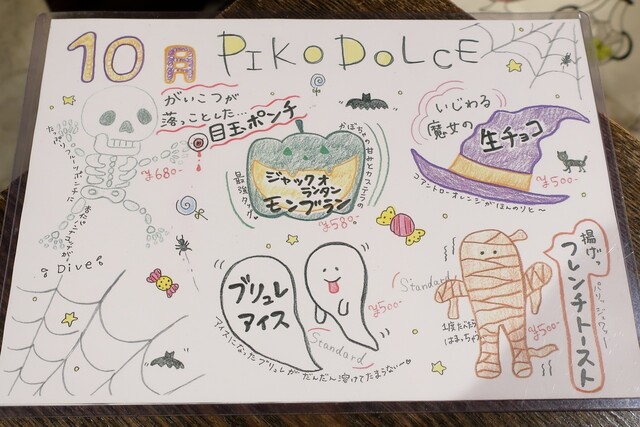 10月 PIKO DOLCE
がいこつが
落っことした…
目玉ポンチ
¥680-
Dive
かぼちゃの甘みとカスタードの
最強タッグ
ジャックオ
ランタン
モンブラン
¥580-
いじわる
魔女の
生チョコ
¥500-
コアントローオレンジがほんのりと〜
ブリュレ
アイス
¥500-
Standard
アイスになったブリュレがだんだん溶けてたまらないー
揚げっ
フレンチトースト
パリッジュワァー
¥500-
Standard
1度たべたら
はまっちゃう